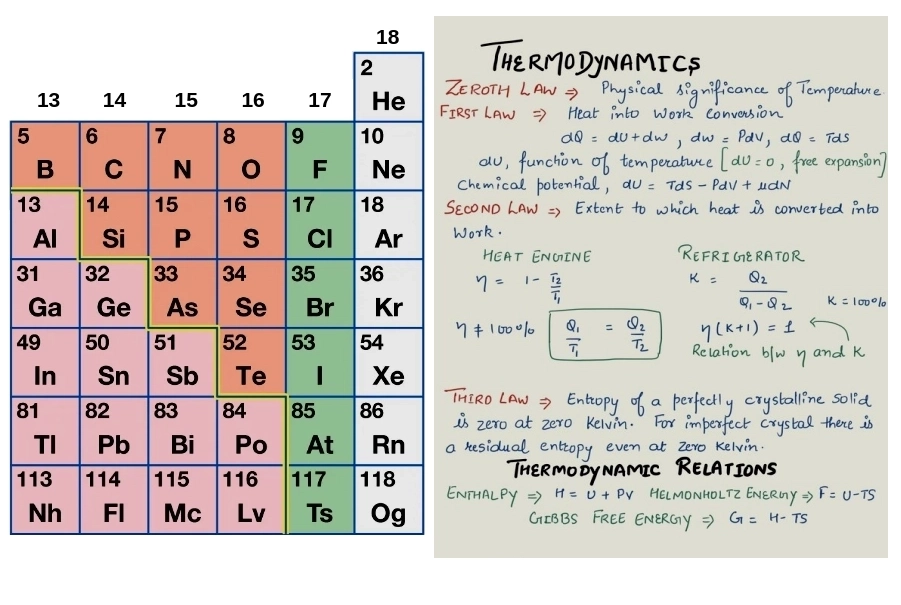 18
13 14 15 16 17
2
He
5 6 7 8 9 10
B C N O F Ne
13 14 15 16 17 18
Al Si P S Cl Ar
31 32 33 34 35 36
Ga Ge As Se Br Kr
49 50 51 52 53 54
In Sn Sb Te I Xe
81 82 83 84 85 86
Tl Pb Bi Po At Rn
113 114 115 116 117 118
Nh Fl Mc Lv Ts Og
THERMODYNAMICS
ZEROTH LAW ⇒ Physical significance of Temperature.
FIRST LAW ⇒ Heat into Work conversion
dQ = dU + dw , dw = PdV, dQ = TdS
dU, function of temperature [dU = 0, free expansion]
Chemical potential, dU = TdS - PdV + μdN
SECOND LAW ⇒ Extent to which heat is converted into
Work.
HEAT ENGINE REFRIGERATOR
η = 1 - T₂/T₁ K = Q₂/(Q₁ - Q₂) K = 100%
η ≠ 100% Q₁/T₁ = Q₂/T₂ η(K+1) = 1
Relation b/w η and K
THIRD LAW ⇒ Entropy of a perfectly crystalline Solid
is zero at zero Kelvin. For imperfect crystal there is
a residual entropy even at zero Kelvin.
THERMODYNAMIC RELATIONS
ENTHALPY ⇒ H = U + PV HELMONHOLTZ ENERGY ⇒ F = U-TS
GIBBS FREE ENERGY ⇒ G = H-TS